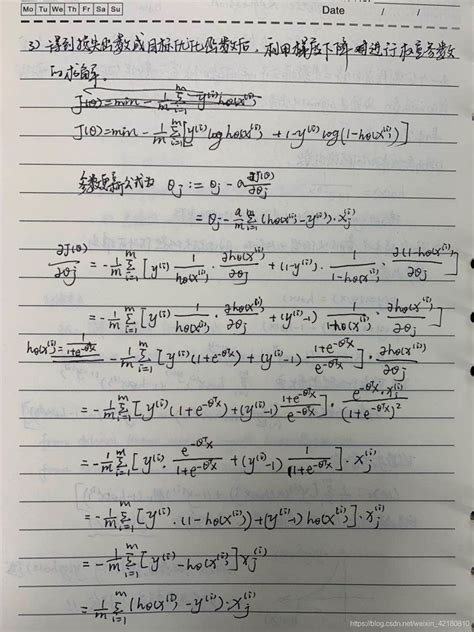 Mo Tu We Th Fr Sa Su Date / /
3) 得到损失函数或目标优化函数后, 利用梯度下降进行权重参数
的求解.
J(θ)=min - 1/m Σ_{i=1}^{m} y^{(i)} hθ(x^{(i)})
J(θ)=min - 1/m Σ_{i=1}^{m} [y^{(i)} log hθ(x^{(i)}) + (1-y^{(i)}) log(1-hθ(x^{(i)}))]
参数更新公式为 θj := θj - α ∂J(θ)/∂θj
= θj - α/m Σ_{i=1}^{m} (hθ(x^{(i)}) - y^{(i)}) · xj^{(i)}
∂J(θ)/∂θj = - 1/m Σ_{i=1}^{m} [y^{(i)} 1/hθ(x^{(i)}) · ∂hθ(x^{(i)})/∂θj + (1-y^{(i)}) · 1/(1-hθ(x^{(i)})) · ∂(1-hθ(x^{(i)}))/∂θj]
= - 1/m Σ_{i=1}^{m} [y^{(i)} 1/hθ(x^{(i)}) · ∂hθ(x^{(i)})/∂θj + (y^{(i)}-1) 1/(1-hθ(x^{(i)})) · ∂hθ(x^{(i)})/∂θj]
hθ(x^{(i)}) = 1/(1+e^{-θᵀx}) - 1/m Σ_{i=1}^{m} [y^{(i)} (1+e^{-θᵀx}) + (y^{(i)}-1) (1+e^{-θᵀx})/e^{-θᵀx}] · ∂hθ(x^{(i)})/∂θj
= - 1/m Σ_{i=1}^{m} [y^{(i)} (1+e^{-θᵀx}) + (y^{(i)}-1) (1+e^{-θᵀx})/e^{-θᵀx}] · e^{-θᵀx} · xj^{(i)}/(1+e^{-θᵀx})²
= - 1/m Σ_{i=1}^{m} [y^{(i)} · e^{-θᵀx}/(1+e^{-θᵀx}) + (y^{(i)}-1) 1/(1+e^{-θᵀx})] · xj^{(i)}
= - 1/m Σ_{i=1}^{m} [y^{(i)} · (1-hθ(x^{(i)})) + (y^{(i)}-1) hθ(x^{(i)})] · xj^{(i)}
= - 1/m Σ_{i=1}^{m} [y^{(i)} - hθ(x^{(i)})] xj^{(i)}
= 1/m Σ_{i=1}^{m} (hθ(x^{(i)}) - y^{(i)}) · xj^{(i)}
https://blog.csdn.net/weixin_42180810